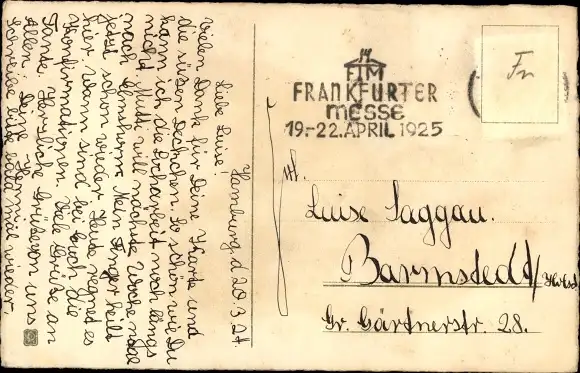 Hamburg, d 20.3.27.
Liebe Luise!
Vielen Dank für Deine Karte und
die süssen Deckchen. So schön wie Du
kann ich die Locharbeit noch längs
nicht. Mutti will nächste Woche
nach Elmshorn. Mein Finger heilt
jetzt schon wieder. Heute regnet es
hier. Wann sind bei Euch die
Konfirmationen. Viele Grüße an
Tante. Herzliche Grüße von uns
Allen. Deine
Schreibe bitte bald mal wieder.
14
FIM
FRANKFURTER
MESSE
19.-22. APRIL 1925
Frl.
Luise Saggau.
Barmstedt/Holst
Gr. Gärtnerstr. 28.